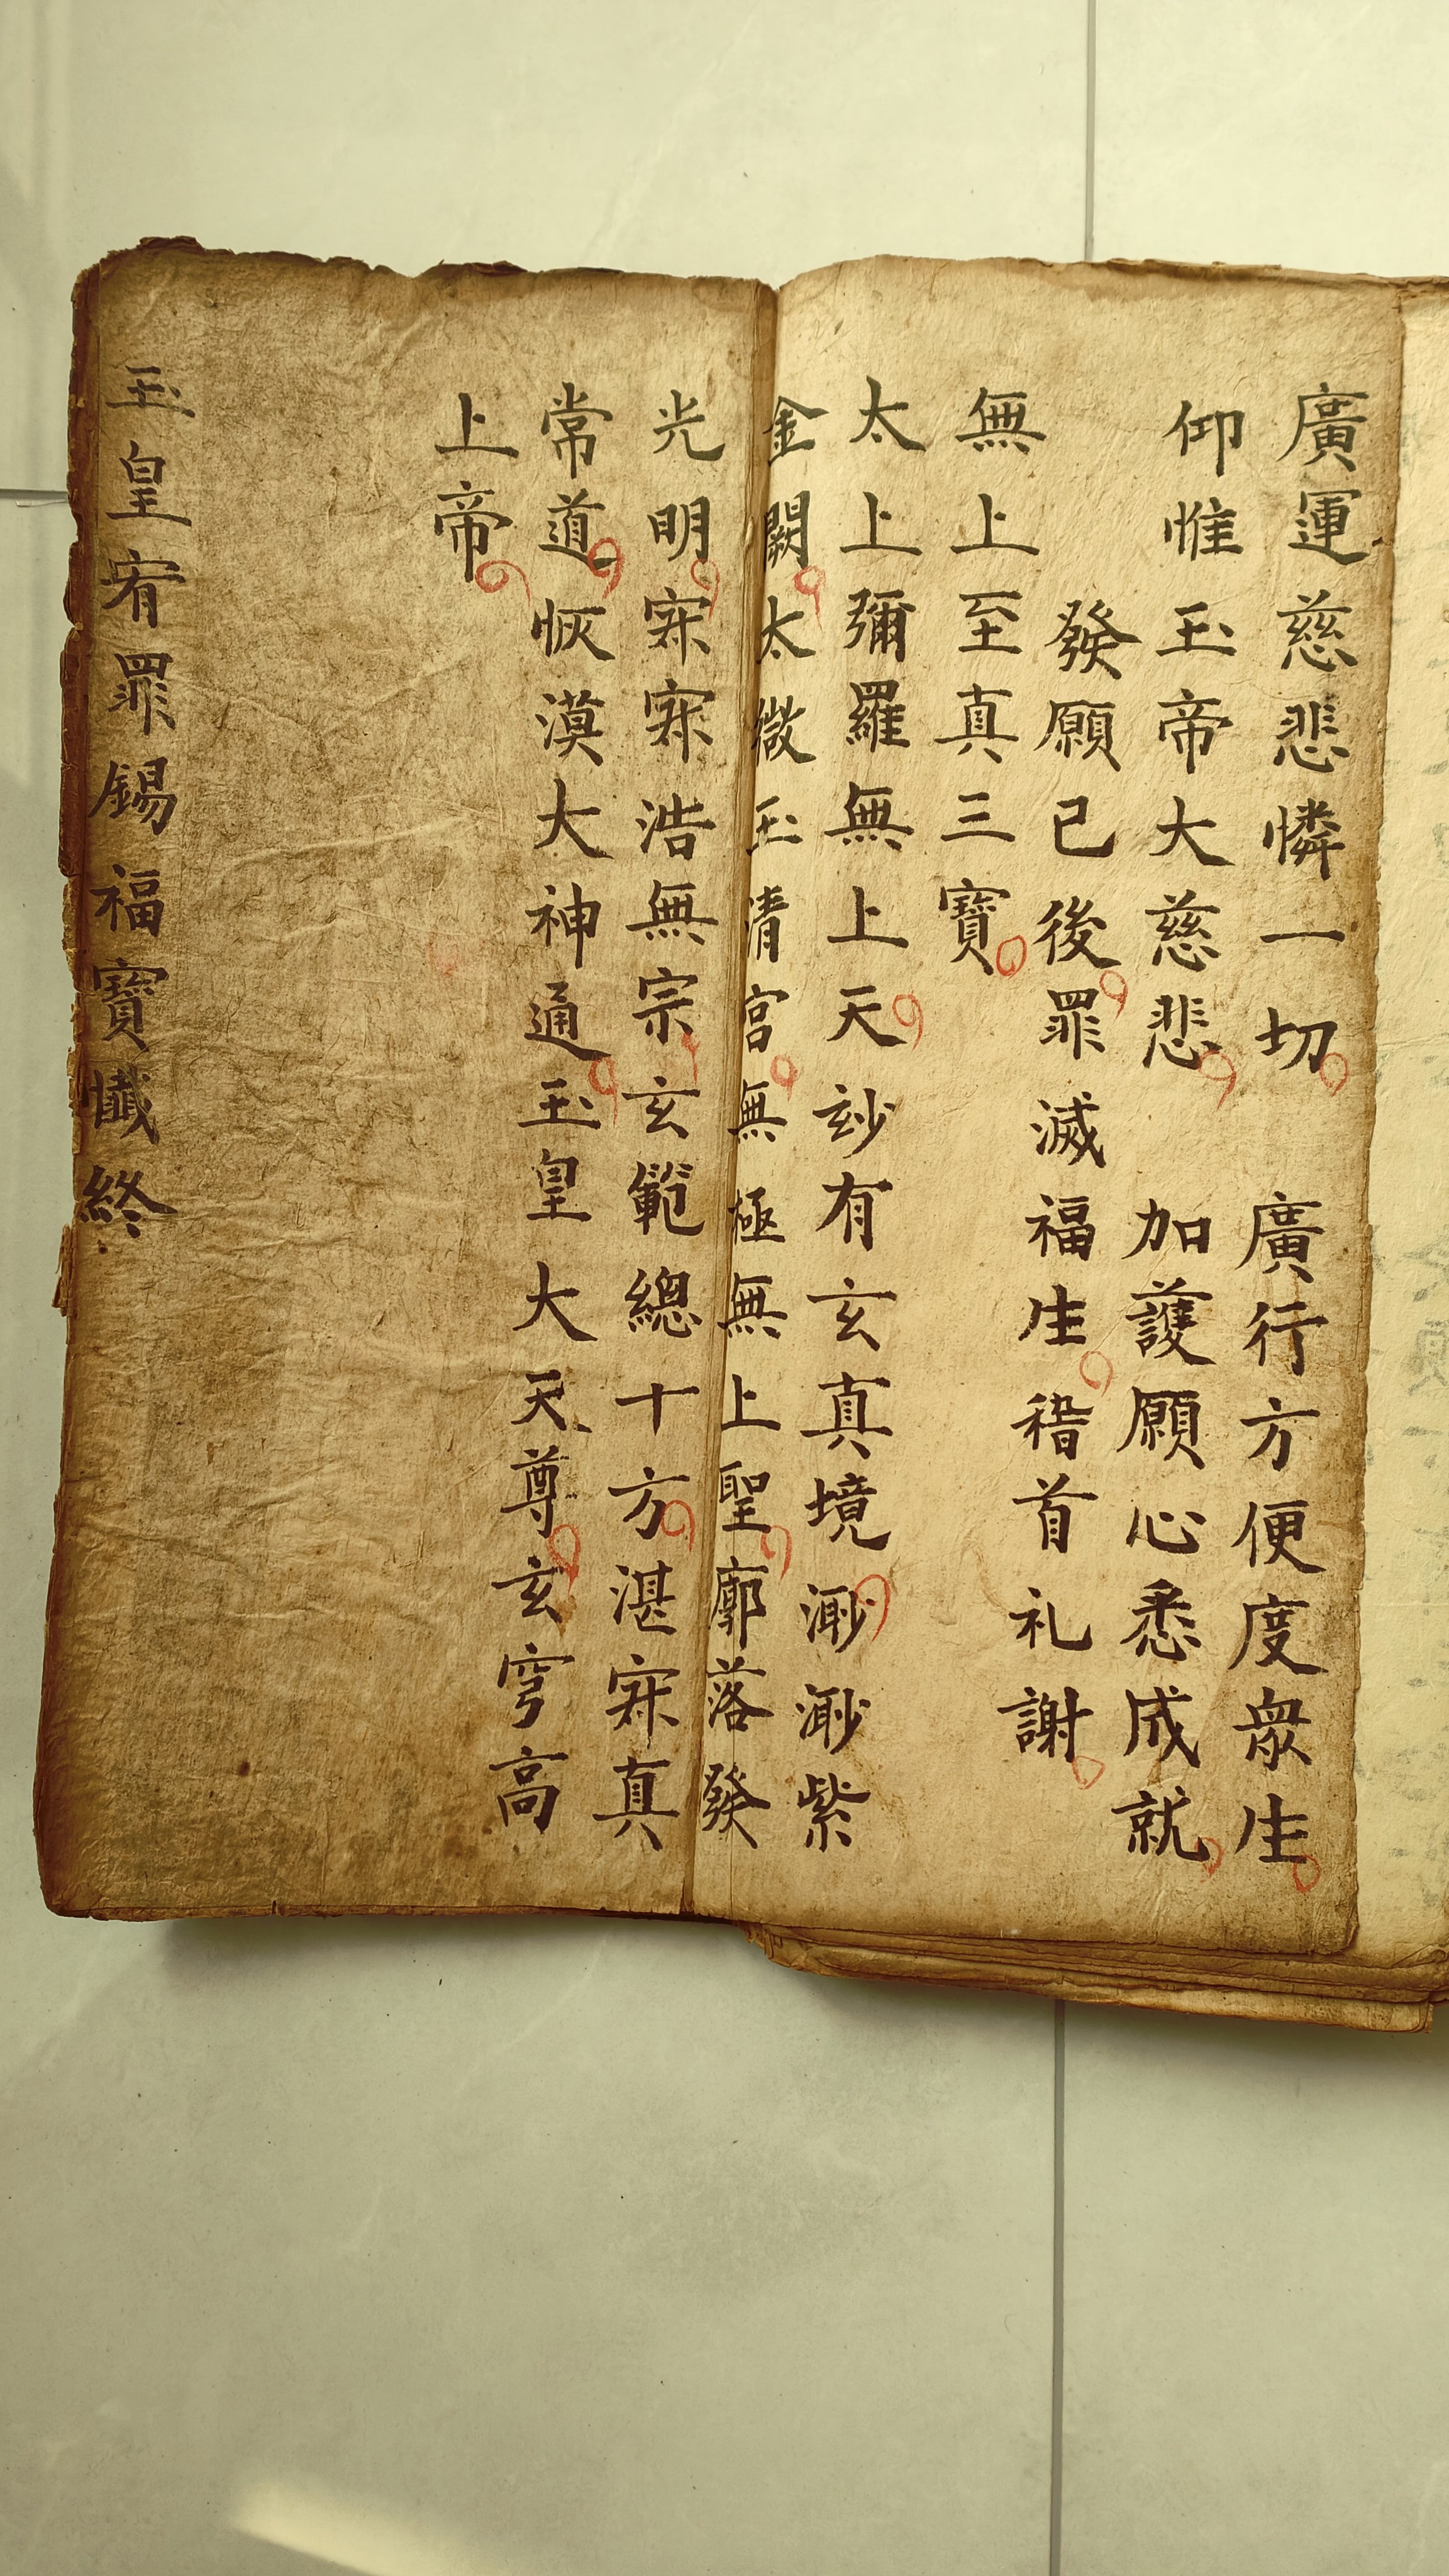 廣運慈悲憐一切　廣行方便度衆生
仰惟玉帝大慈悲　加護願心悉成就
發願已後罪滅福生稽首礼謝
無上至真三寶
太上彌羅無上天玅有玄真境渺渺紫
金闕太微玉清宮無極無上聖廓落發
光明寂寂浩無宗玄範總十方湛寂真
常道恢漠大神通玉皇大天尊玄穹高
上帝
玉皇宥罪錫福寶懺終